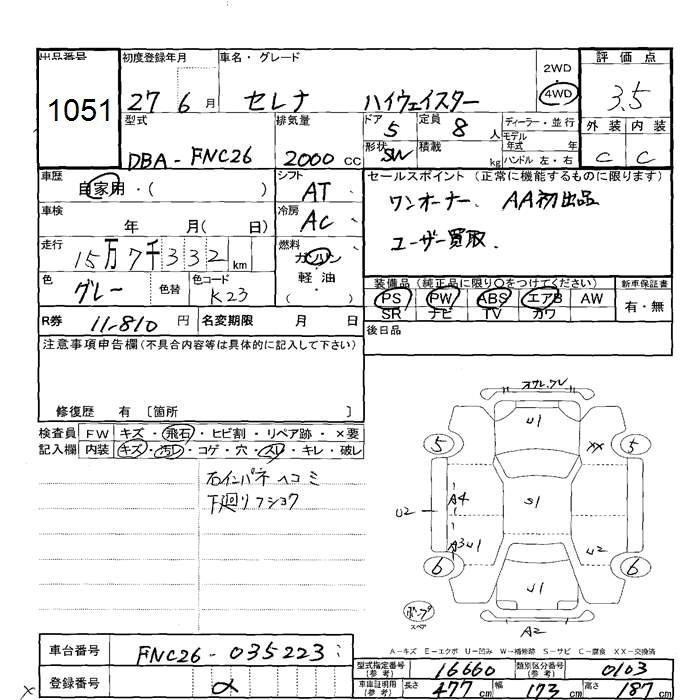 出品番号 初度登録年月 車名・グレード 評価点
1051 27 6 月 セレナ ハイウェイスター 2WD 4WD 3.5
型式 排気量 ドア 定員 ディーラー・並行 外装 内装
DBA-FNC26 2000 cc 5 8 人 モデル年式 年 C C
形状 SW 積載 kg ハンドル 左・右
車歴 シフト セールスポイント (正常に機能するものに限ります)
自家用・( ) AT ワンオーナー、 AA初出品
車検 冷房
年 月( 日) AC ユーザー買取、
走行 燃料
15万7千332 km ガソリン
軽・油
( )
色 色替 色コード 装備品 (純正品に限り○をつけてください) 新車保証書
グレー K23 PS PW ABS エアB AW 有・無
SR ナビ TV カワ
R券 11-810 円 名変期限 月 日 後日品
注意事項申告欄(不具合内容等は具体的に記入して下さい)
修復歴 有 〔箇所 〕
検査員 FW キズ・飛石・ヒビ割・リペア跡・×要
記入欄 内装 キズ・汚レ・コゲ・穴・スレ・キレ・破レ
右インパネヘコミ
下廻りフショク
U1
5 XX 5
A4 S1
U2
A3 U1 U2
6 6
U1
スペ
A2
A-キズ E-エクボ U-凹み W-補修跡 S-サビ C-腐食 XX-交換済
車台番号 FNC26-035223
型式指定番号 (参考) 16660 類別区分番号 (参考) 0103
登録番号
車庫証明用 (参考) 長さ 477 cm 幅 173 cm 高さ 187 cm